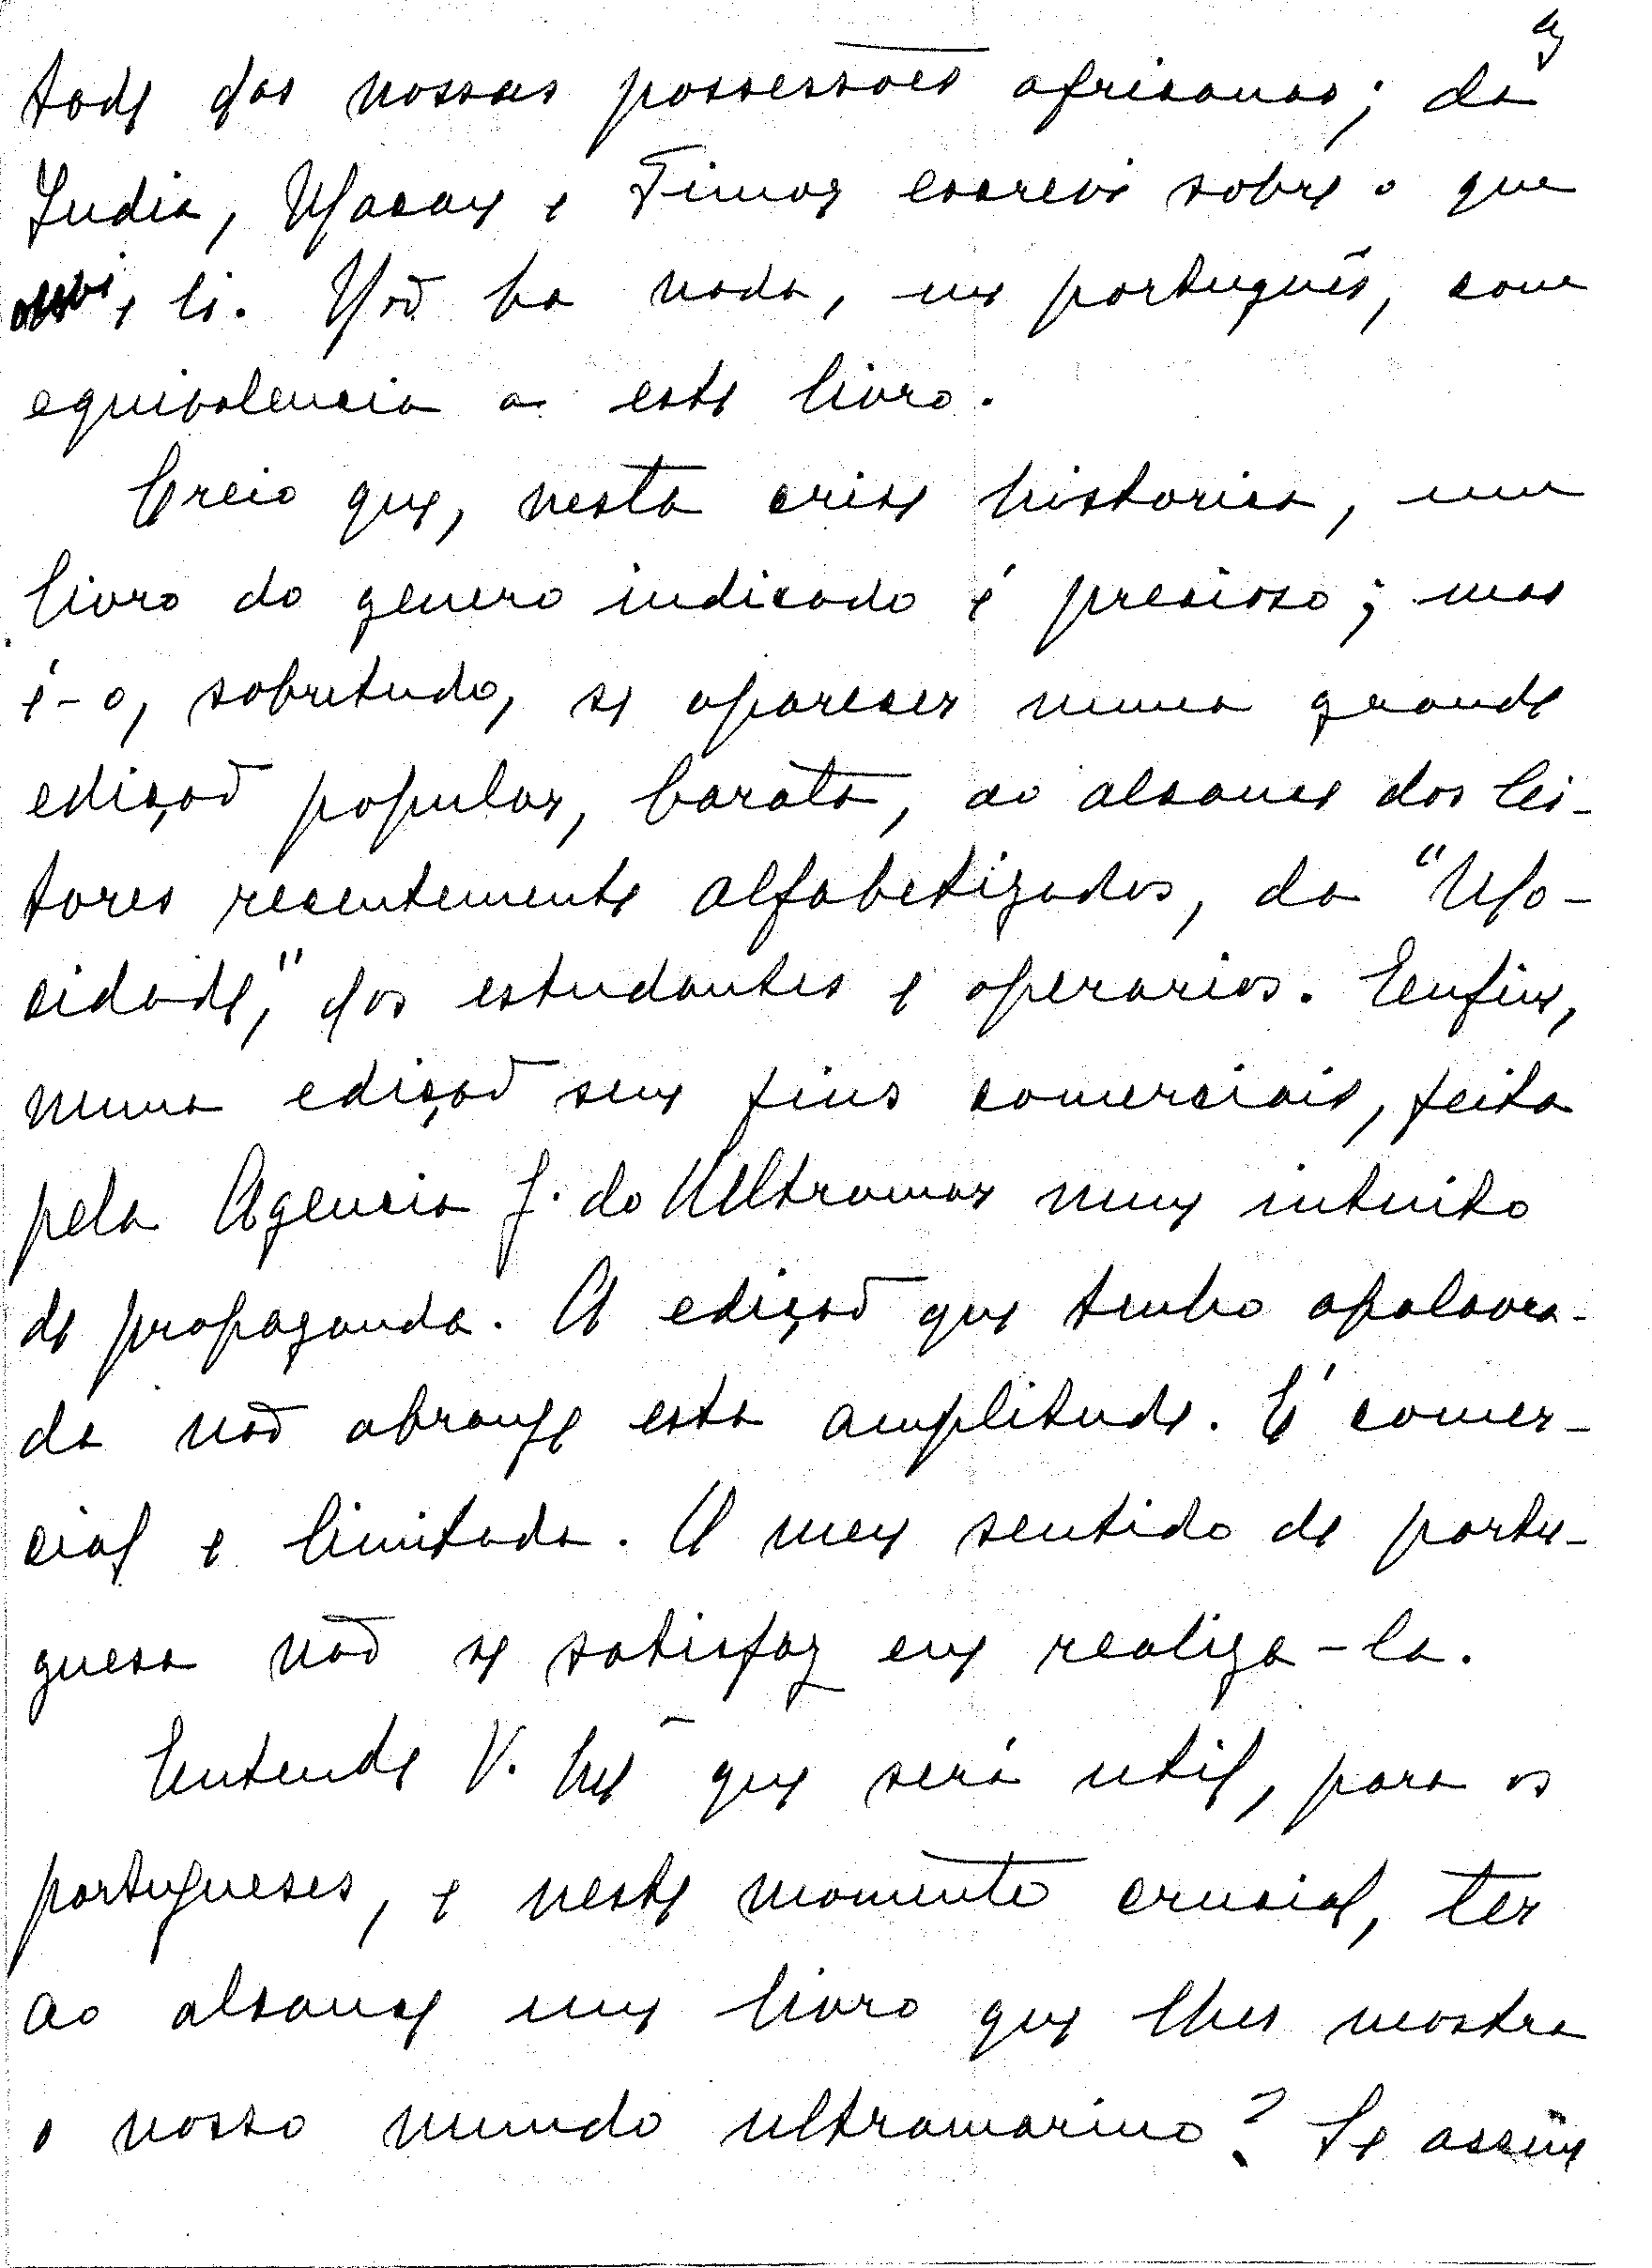 tade das nossas possessões africanas; da
India, Macau e Timor escrevi sobre o que
ouvi e li. Não ha nada, em português, com
equivalencia a este livro.
Creio que, nesta crise historica, um
livro do genero indicado é precioso; mas
é-o, sobretudo, se aparecer numa grande
edição popular, barata, ao alcance dos lei-
tores recentemente alfabetizados, da "Mo-
cidade", dos estudantes e operarios. Enfim,
numa edição sem fins comerciais, feita
pela Agencia G. do Ultramar num intuito
de propaganda. A edição que tenho apalavra-
da não abrange esta amplitude. É comer-
cial e limitada. O meu sentido de portu-
guesa não se satisfaz em realiza-la.
Entende V. Exª que será util, para os
portugueses, e neste momento crucial, ter
ao alcance um livro que lhes mostra
o nosso mundo ultramarino? Se assim